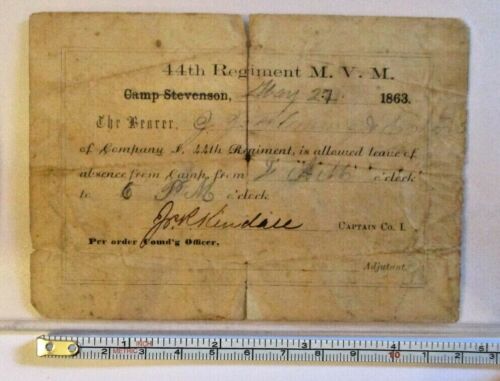 44th Regiment M. V. M.
Camp Stevenson, May 27 1863.
The Bearer,
of Company I. 44th Regiment, is allowed leave of
absence from Camp, from o'clock
to 6 P.M o'clock
Jos R Kendall Captain Co. I.
Per order Comd'g Officer.
Adjutant.
1 INCH 2 3 4
METRIC 10